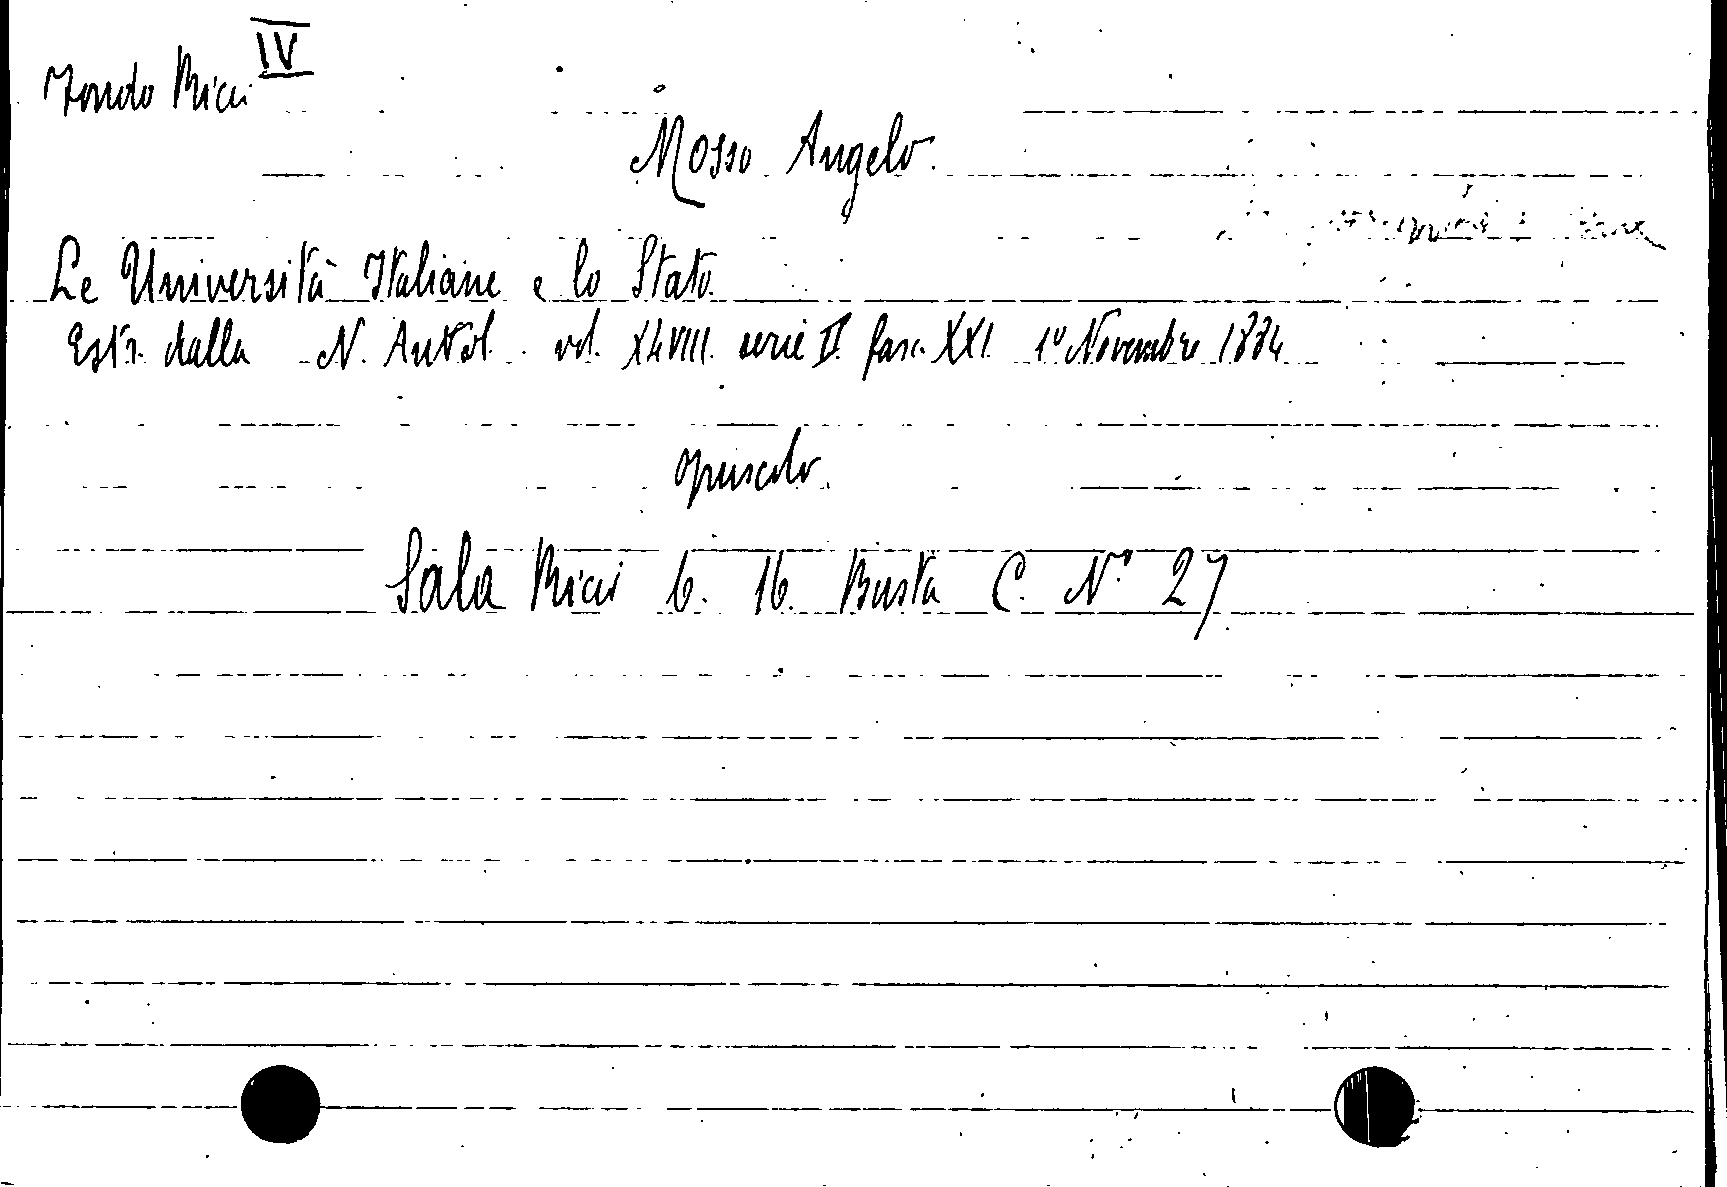 Fondo Ricci IV
Mosso Angelo.
Le Università Italiane e lo Stato.
Estr. dalla N. Antol. vol. XLVIII. serie II. fasc. XXI. 1º Novembre 1884
opuscolo.
Sala Ricci 6. 16. Busta C. Nº 27